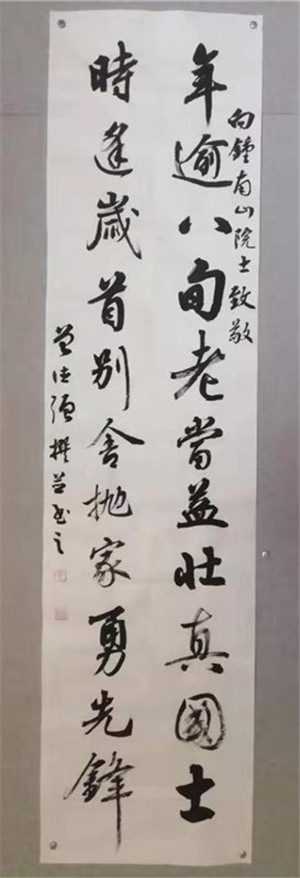 向鐘南山院士致敬
年逾八旬老當益壯真國士
時逢歲首別舍抛家勇先鋒
曾德强撰并書之